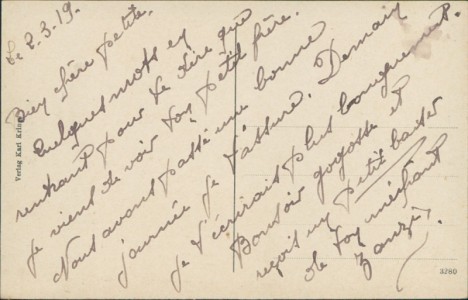 Le 2.3.19.
Bien chère petite.
Quelques mots en
rentrant pour te dire que
je viens de voir ton petit frère.
Nous avons passé une bonne
journée je t'assure. Demain
je t'écrirais plus longuement.
Bonsoir gogosse et
reçoit un petit baiser
de ton méchant
Zanzi
Verlag Karl
3280